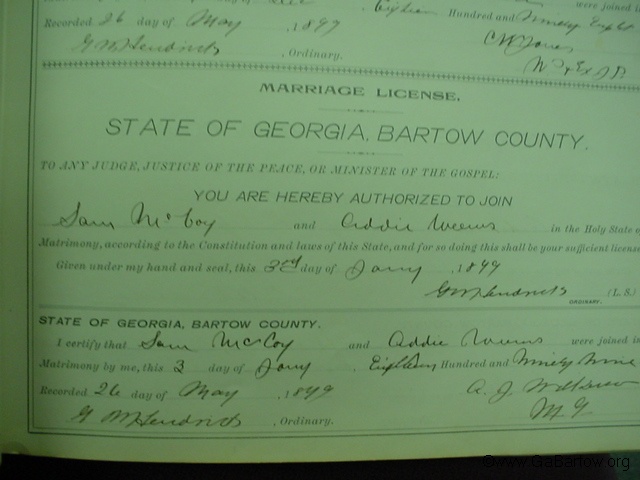 Eighteen Hundred and Ninety Eight
Recorded 26 day of May , 1899
G W Hendricks , Ordinary. C W Jones
N P & Ex J P.
MARRIAGE LICENSE.
STATE OF GEORGIA, BARTOW COUNTY.
TO ANY JUDGE, JUSTICE OF THE PEACE, OR MINISTER OF THE GOSPEL:
YOU ARE HEREBY AUTHORIZED TO JOIN
Sam McCoy and Addie Weems in the Holy State of
Matrimony, according to the Constitution and laws of this State, and for so doing this shall be your sufficient license
Given under my hand and seal, this 3rd day of Jany , 1899
G W Hendricks (L. S.)
ORDINARY.
STATE OF GEORGIA, BARTOW COUNTY.
I certify that Sam McCoy and Addie Weems were joined in
Matrimony by me, this 3 day of Jany , Eighteen Hundred and Ninety Nine
Recorded 26 day of May , 1899 A. J.
G W Hendricks , Ordinary. M G
©www.GaBartow.org